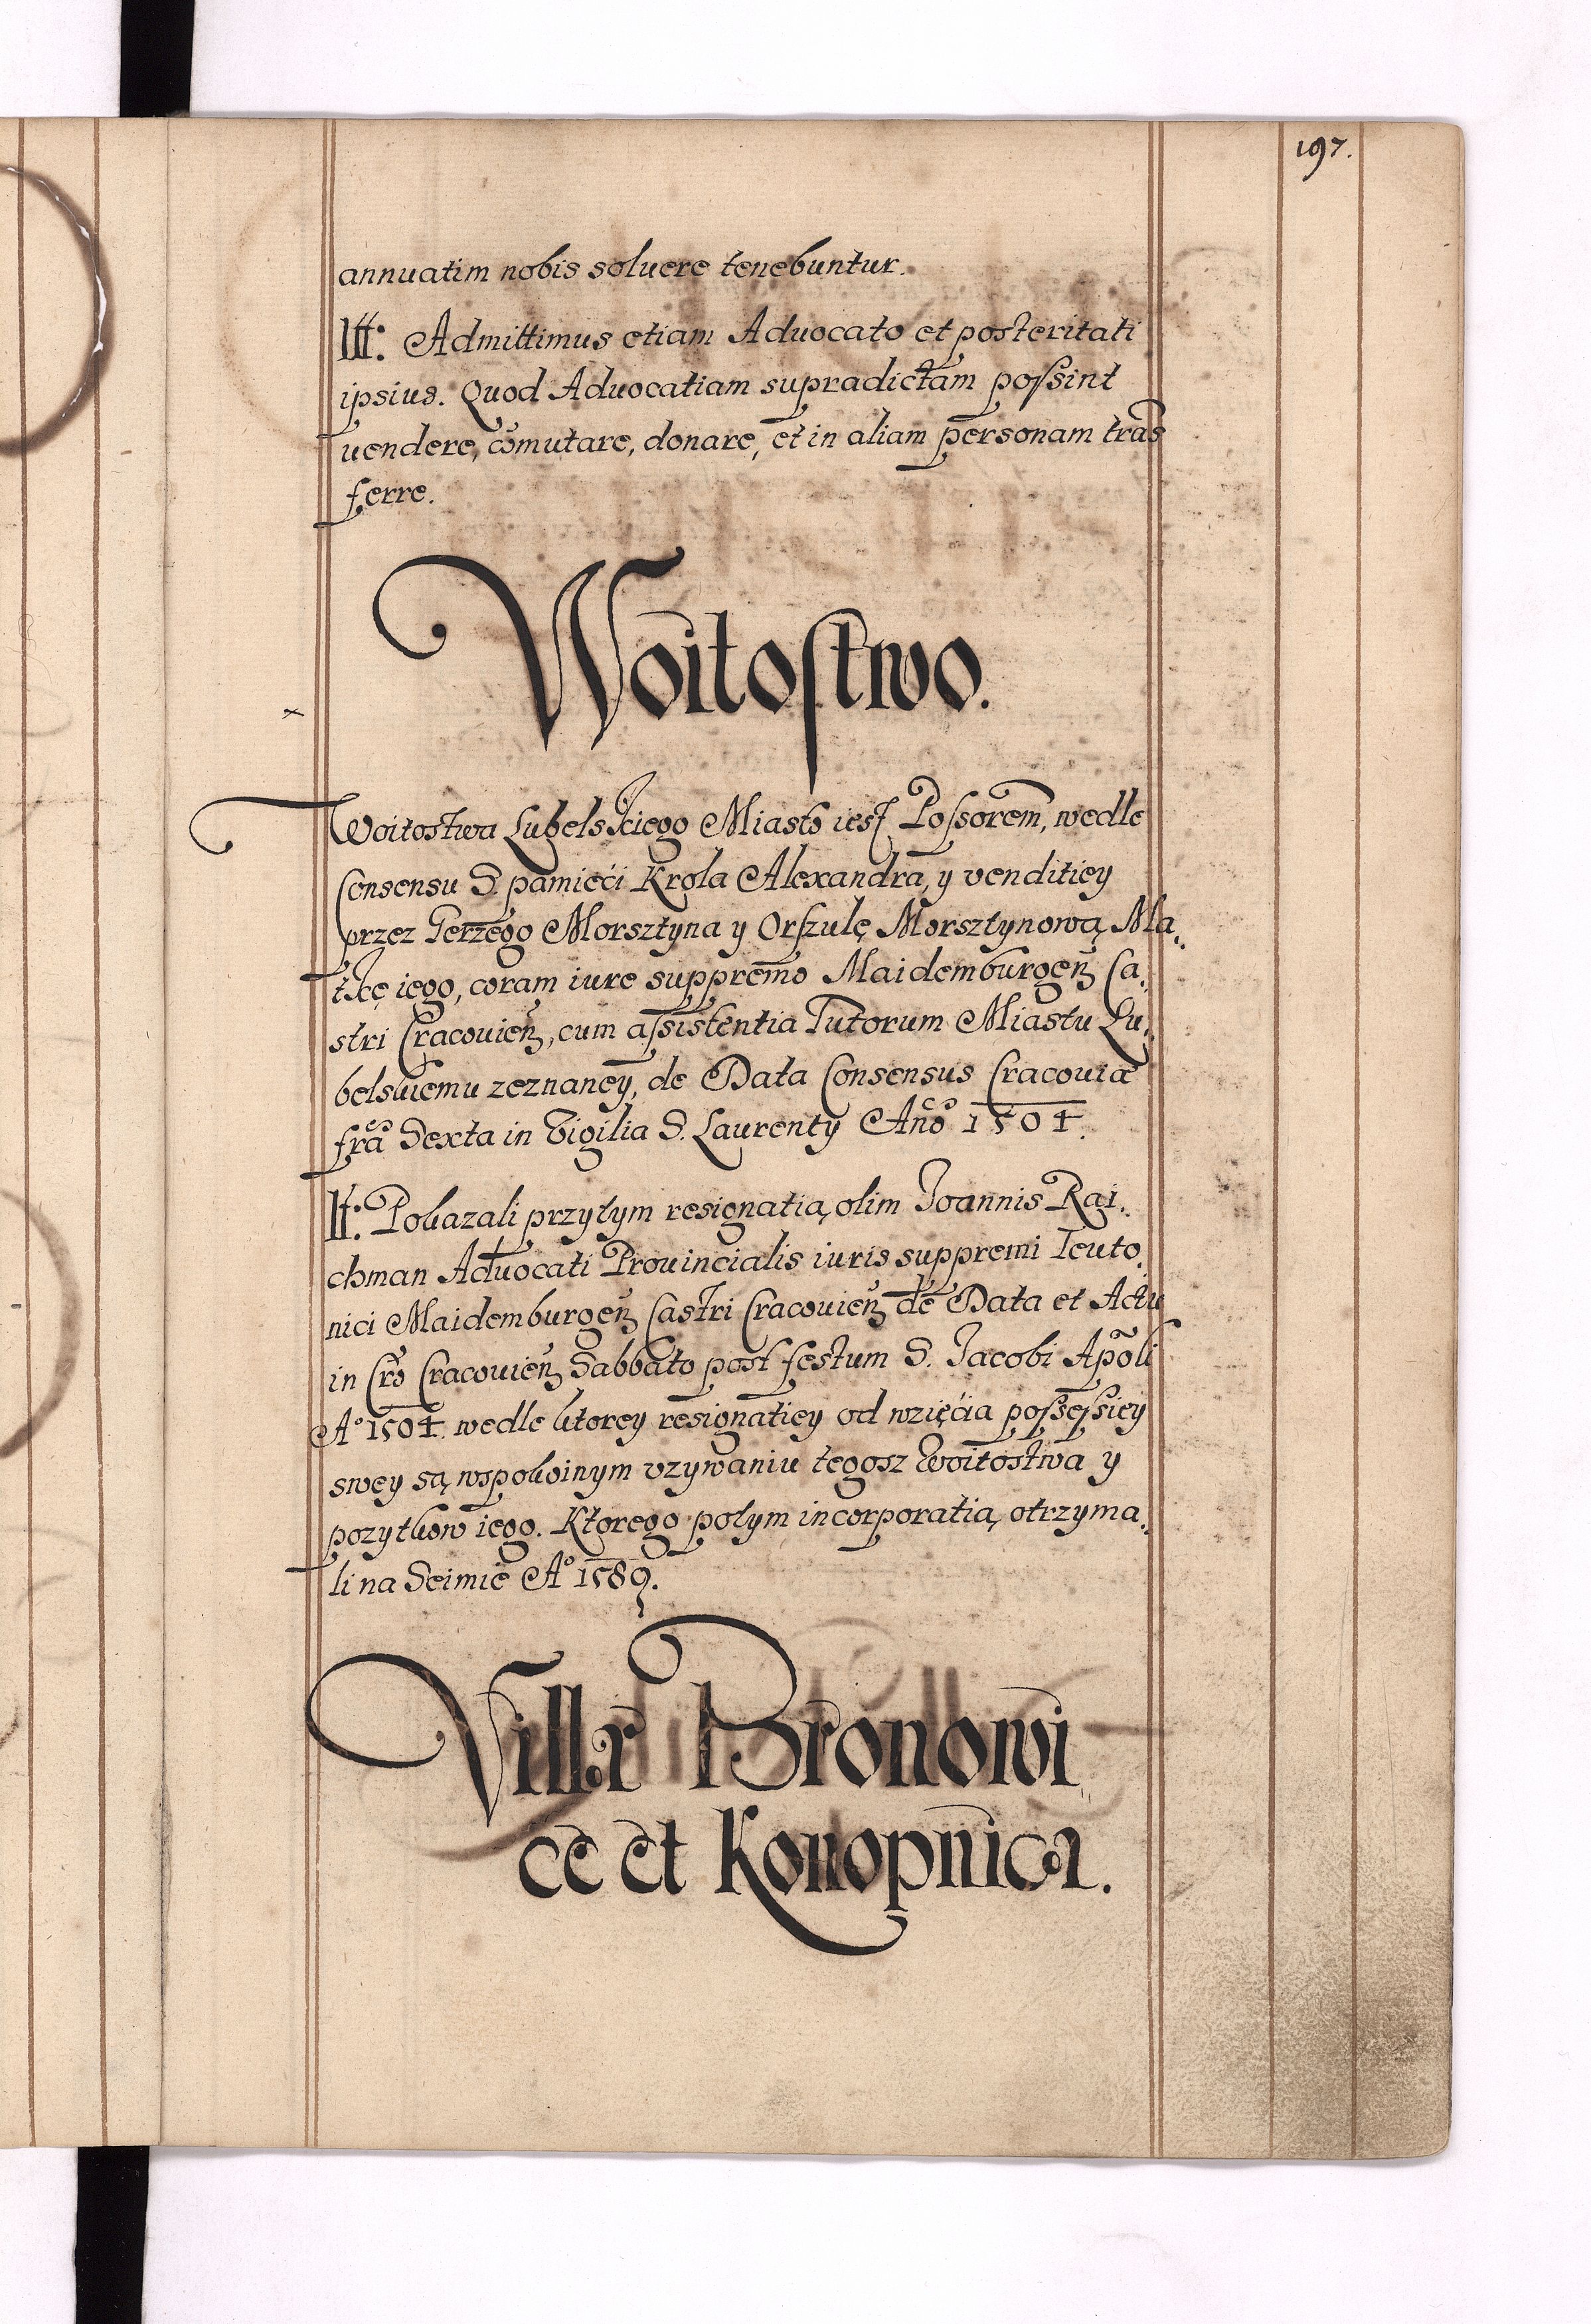 197.
annuatim nobis soluere tenebuntur.
III: Admittimus etiam Aduocato et posteritati
ipsius. Quod Aduocatiam supradictam poſsint
uendere, cōmutare, donare, et in aliam personam trās
ferre.
Woitoſtwo.
Woitostwa Lubelskiego Miasto iest Poſsorem, wedle
Consensu S. pamięći Krola Alexandra, y venditiey
przez Jerzego Morsztyna y Orſzulę Morsztynową Ma„
tkę iego, coram iure suppremo Maidemburgeñ Ca„
stri Cracouieñ, cum aſsistentia Tutorum Miastu Lu„
belskiemu zeznaney, de Data Consensus Cracouiæ
fr̃a Sexta in Vigilia S. Laurenty Año 1504.
II: Pokazali przytym resignatią olim Joannis Rai„
chman Aduocati Prouincialis iuris suppremi Teuto„
nici Maidemburgeñ Castri Cracouieñ de Data et Actu
in Cr̃o Cracouieñ Sabbato post festum S. Jacobi Ap̃oli
A° 1504. wedle ktorey resignatiey od wzięćia poſseſsiey
swey są wspokoinym vzywaniu tegosz Woitostwa y
pozytkow iego. Ktorego potym incorporatią otrzyma„
li na Seimie A° 1589.
Villæ Bronowi
ce et Konopnica.